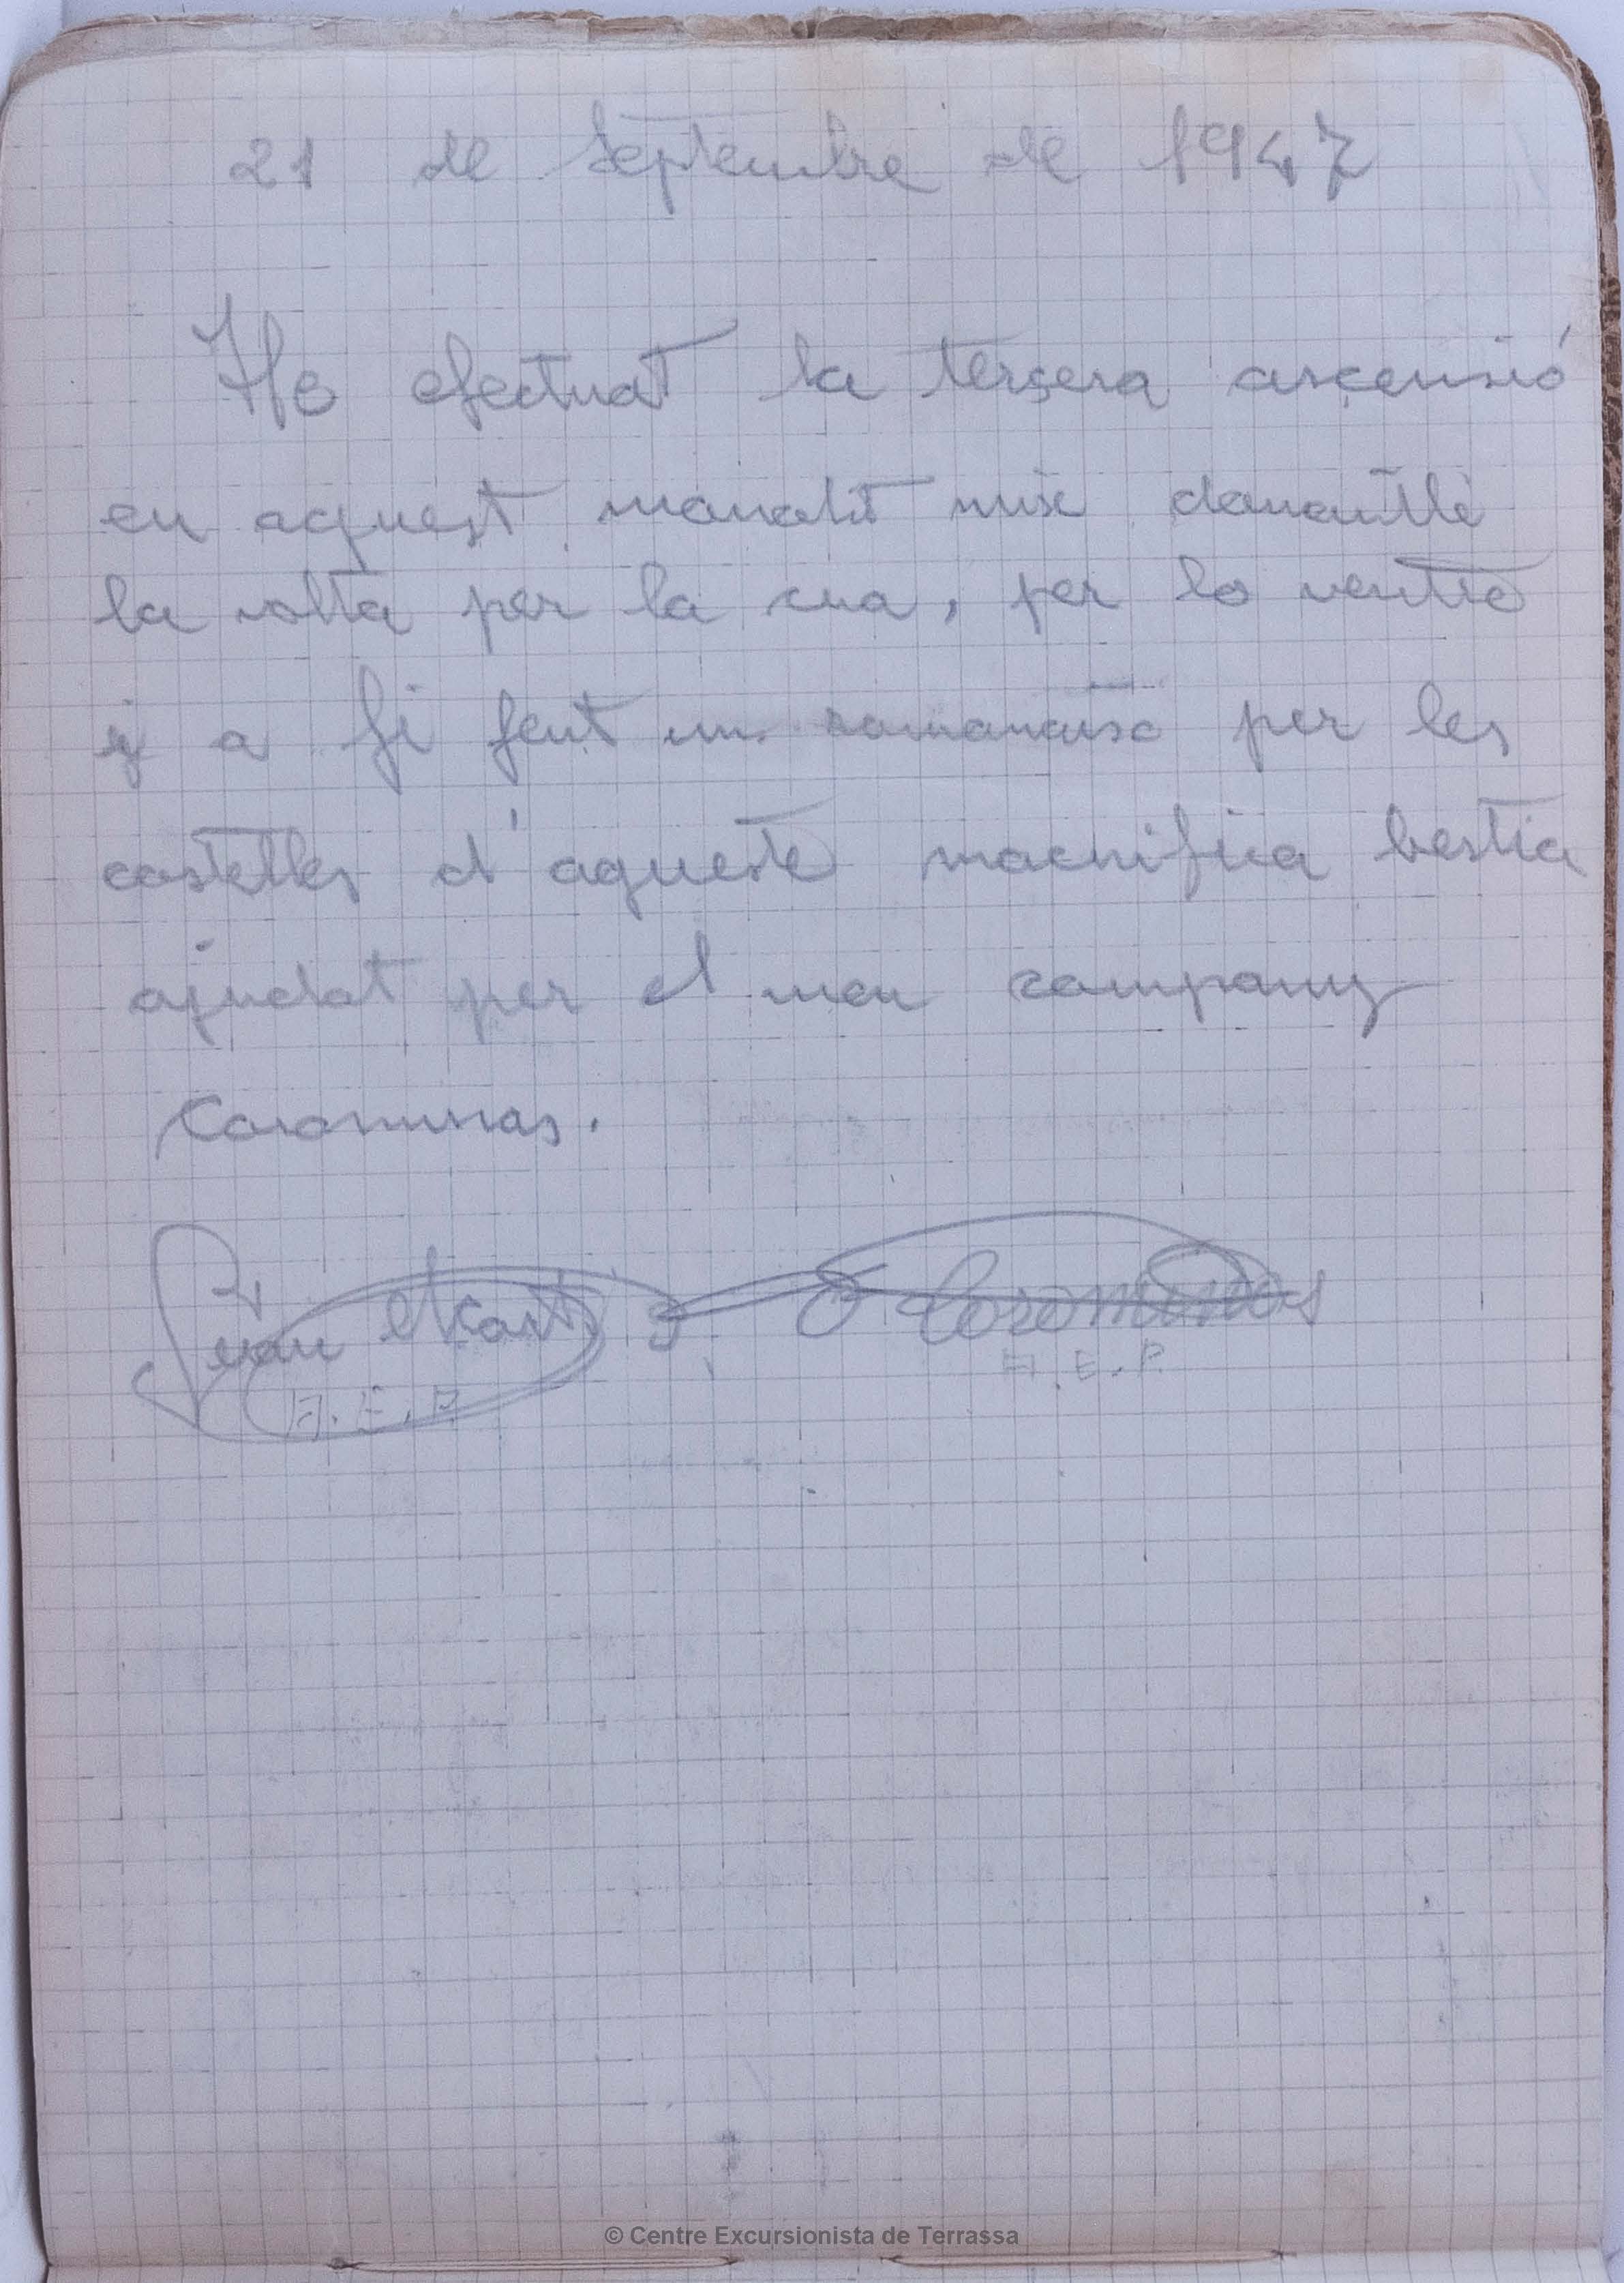 21 de Septembre de 1947
He efectuat la terçera asçensió
en aquest manolit mix donantli
la volta per la cua, per lo ventre
y a fi fent un per les
costelles d'aqueste macnifica bestia
ajudat per el meu company
Corominas.
Juan Marti Corominas
A.E.P. A.E.P.
© Centre Excursionista de Terrassa